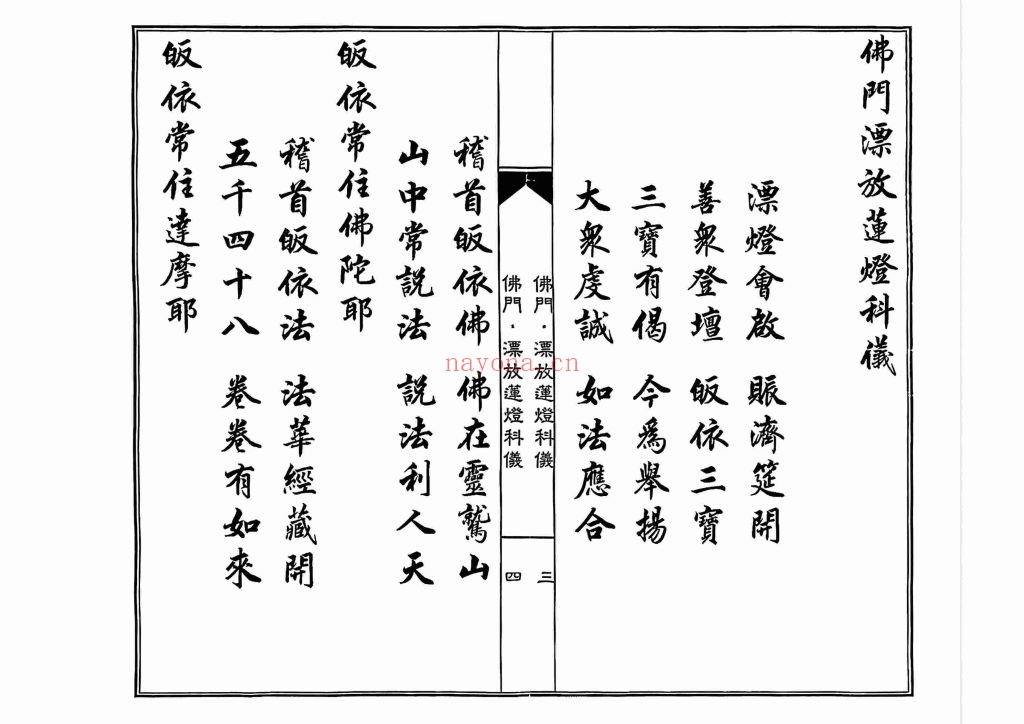 佛門漂放蓮燈科儀
漂燈會啟　賑濟筵開
善衆登壇　皈依三寶
三寶有偈　今爲舉揚
大衆虔誠　如法應合
佛門·漂放蓮燈科儀
三
佛門·漂放蓮燈科儀
四
稽首皈依佛　佛在靈鷲山
山中常説法　説法利人天
皈依常住佛陀耶
稽首皈依法　法華經藏開
五千四十八　卷卷有如來
皈依常住達摩耶
nayona.cn